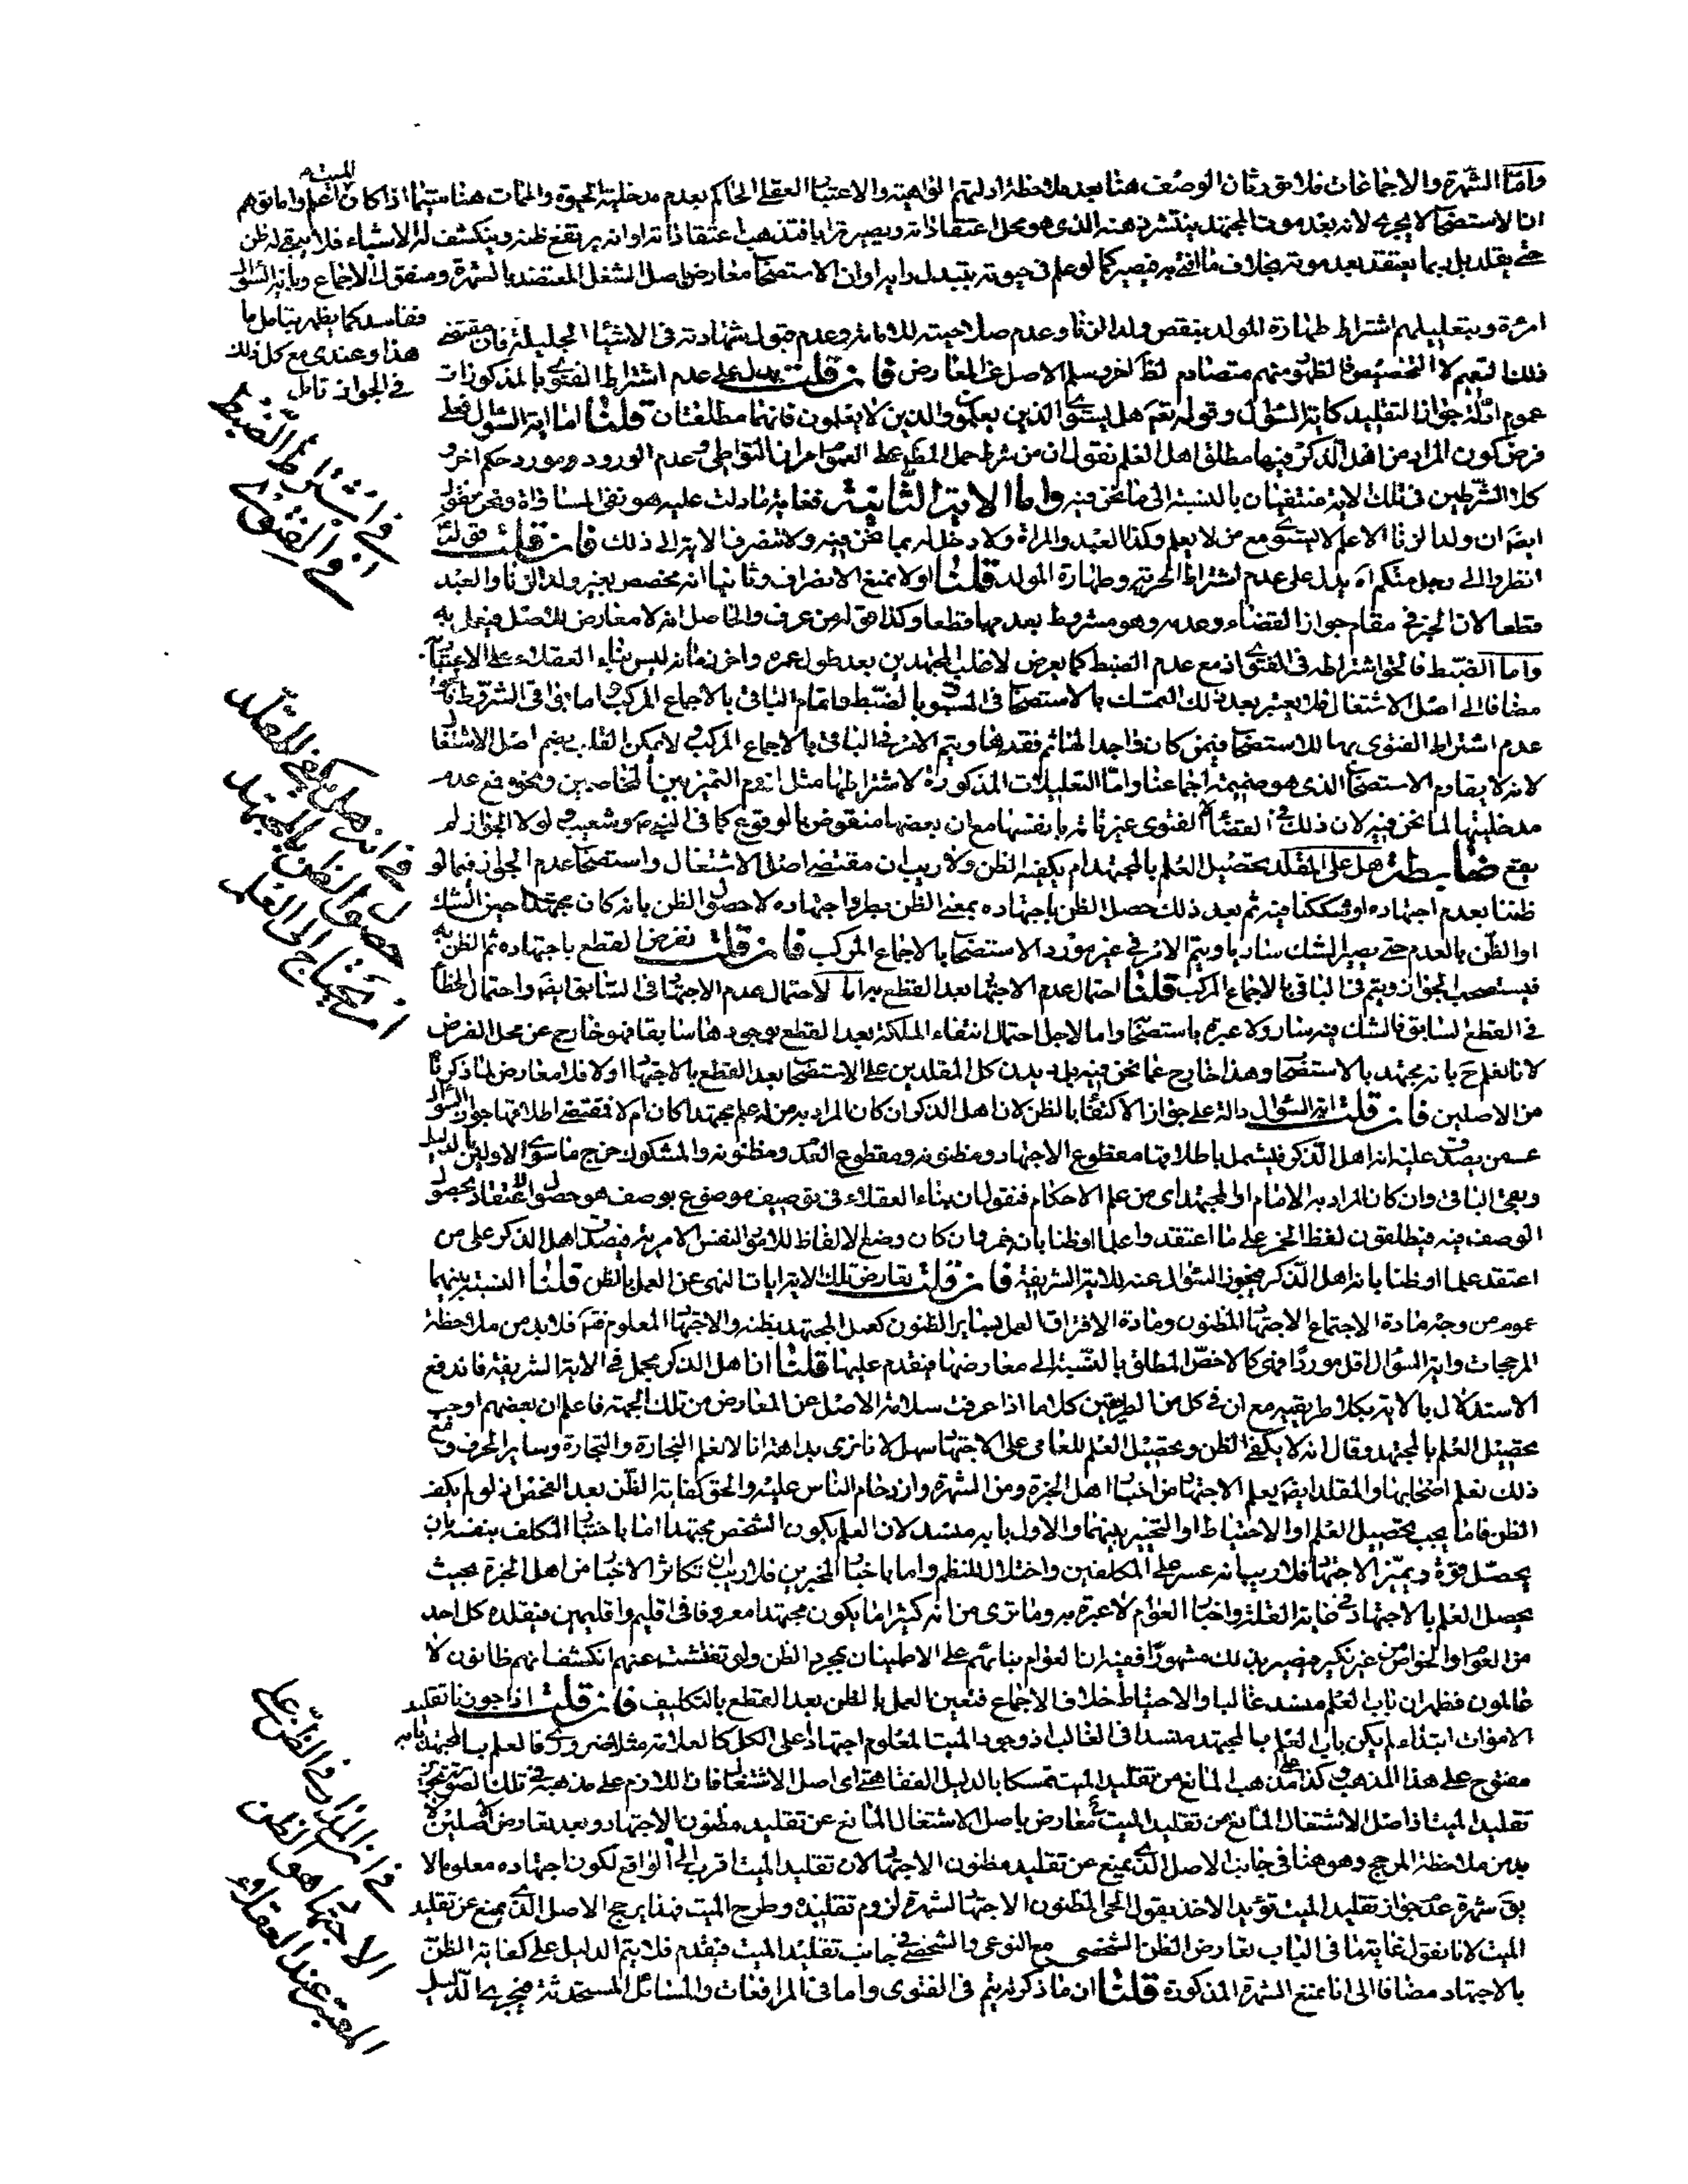 واما الشهرة والاجماعات فلا تورثان الوصف هنا بعد ملاحظة ادلتهم الواهية والاعتبار العقلي الحاكم بعدم مدخلية الحيوة والممات هنا سيما اذا كان الميت اعلم واما توهم
ان الاستصحاب لا يجرى لانه بعد موت المجتهد ينتشر ذهنه الذى هو محل اعتقاداته ويصير ترابا فتذهب اعتقاداته او انه يرتفع ظنه وينكشف له الاشياء فلا يبقى له ظن
حتى يقلد بل ربما يعتقد بعد موته بخلاف ما افتى به فيصير كما لو علم فى حيوته بتبدل رايه او ان الاستصحاب معارض باصل الشغل المعتضد بالشهرة ومنقول الاجماع وباية السؤال
ففاسد كما يظهر بتامل ما
هذا وعندى مع كل ذلك
فى الجواز تامل
امرة وبتعليلهم اشتراط طهارة المولد بنقص ولد الزنا وعدم صلاحيته للامامة وعدم قبول شهادته فى الاشياء الجليلة فان مقتضى
ذلك التعميم لا التخصيص فالظهور منهم متصادم لظ اخر وسلم الاصل عن المعارض فان قلت يدل على عدم اشتراط الفتوى بالمذكورات
عموم ادلة جواز التقليد كاية السؤال وقوله تعم هل يستوى الذين يعلمون والذين لا يعلمون فانهما مطلقتان قلنا اما اية السؤال فعلى
فرض كون المراد من اهل الذكر فيها مطلق اهل العلم نقول ان من شرط حمل المطلق على العموم امران التواطى وعدم الورود مورد حكم اخر و
كلا الشرطين فى تلك الاية منتفيان بالنسبة الى ما نحن فيه واما الاية الثانية فغاية ما دلت عليه هو نفى المساواة ونحن نقول
ايضا ان ولد الزنا الاعلم لا يستوى مع من لا يعلم وكذا العبد والمراة ولا دخل له بما نحن فيه ولا تنصرف الاية الى ذلك فان قلت قوله
انظروا الى رجل منكم اه يدل على عدم اشتراط الحرية وطهارة المولد قلنا اولا نمنع الانصراف وثانيا انه مخصص بغير ولد الزنا والعبد
قطعا لان الخبر فى مقام جواز القضاء وعدمه وهو مشروط بعدمها قطعا وكذا قوله من عرف والحاصل انه لا معارض للاصل فيعمل به
واما الضبط فالحق اشتراطه فى الفتوى اذ مع عدم الضبط كما يعرض لاغلب المجتهدين بعد طول عمره واخر زمانه ليس بناء العقلاء على الاعتبار
مضافا الى اصل الاشتغال فلا يعتبر بعد ذلك التمسك بالاستصحاب فى المسبوق بالضبط واتمام الباقى بالاجماع المركب اما باقى الشروط فالحق
عدم اشتراط الفتوى بها للاستصحاب فيمن كان واجدا لها ثم فقدها ويتم الامر فى الباقى بالاجماع المركب لا يمكن القلب بضم اصل الاشتغال
لانه لا يقاوم الاستصحاب الذى هو ضميمة اجماعنا واما التعليلات المذكورة لاشتراطها مثل لزوم التميز بين المتخاصمين ونحوه فمع عدم
مدخليتها لما نحن فيه لان ذلك فى القضاء لا الفتوى غير تامة بانفسها مع ان بعضها منقوض بالوقوع كما فى النبى ص وشعيب لولا الجواز لم
يقع ضابطة هل على المقلد تحصيل العلم بالمجتهد ام يكفيه الظن ولا ريب ان مقتضى اصل الاشتغال واستصحاب عدم الجواز فيما لو
ظننا بعدم اجتهاده او شككنا فيه ثم بعد ذلك حصل الظن باجتهاده بمعنى الظن بطرو اجتهاده لا حصول الظن بانه كان مجتهدا حين الشك
او الظن بالعدم حتى يصير الشك ساريا ويتم الامر فى غير مورد الاستصحاب بالاجماع المركب فان قلت نفرض القطع باجتهاده ثم الظن به
فيستصحب الجواز ويتم فى الباقى بالاجماع المركب قلنا احتمال عدم الاجتهاد بعد القطع به اما لاحتمال عدم الاجتهاد فى السابق ايضا واحتمال الخطأ
فى القطع السابق فالشك فيه سار ولا عبرة باستصحاب واما لاجل احتمال انتفاء الملكة بعد القطع بوجودها سابقا فهو خارج عن محل الفرض
لانا نعلم ح بانه مجتهد بالاستصحاب وهذا خارج عما نحن فيه بل ديدن كل المقلدين على الاستصحاب بعد القطع بالاجتهاد اولا فلا معارض لما ذكرنا
من الاصلين فان قلت اية السؤال دالة على جواز الاكتفاء بالظن لان اهل الذكر ان كان المراد به من له علم مجتهدا كان ام لا فمقتضى اطلاقها جواز السؤال
عمن يصدق عليه انه اهل الذكر فيشمل باطلاقها مقطوع الاجتهاد ومظنونه ومقطوع العدم ومظنونه والمشكوك خرج ما سوى الاولين بالدليل
وبقى الباقى وان كان المراد به الامام او المجتهد اى من علم الاحكام فنقول ان بناء العقلاء فى توصيف موضوع بوصف هو حصول الاعتقاد بحصول
الوصف فيه فيطلقون لفظ الخمر على ما اعتقدوا علما او ظنا بانه خمر وان كان وضع الالفاظ للامور النفس الامرية فيصدق اهل الذكر على من
اعتقد علما او ظنا بانه اهل الذكر فيجوز السؤال عنه للاية الشريفة فان قلت تعارض تلك الاية ايات النهى عن العمل بالظن قلنا النسبة بينهما
عموم من وجه مادة الاجتماع الاجتهاد المظنون ومادة الافتراق العمل بساير الظنون كعمل المجتهد بظنه والاجتهاد المعلوم فيه فلا بد من ملاحظة
المرجحات واية السؤال اقل موردا فهى كالاخص المطلق بالنسبة الى معارضها فيقدم عليها قلنا ان اهل الذكر مجمل فى الاية الشريفة فاندفع
الاستدلال بالاية بكلا طريقيه مع ان فى كل من الطريقين كلاما اذا عرفت سلامة الاصل عن المعارض من تلك الجهة فاعلم ان بعضهم اوجب
تحصيل العلم بالمجتهد وقال انه لا يكفى الظن وتحصيل العلم للعامى على الاجتهاد سهل لانا نرى بداهة انا لا نعلم النجارة والتجارة وساير الحرف ومع
ذلك نعلم اصحابها والمقلد ايضا يعلم الاجتهاد من اخبار اهل الخبرة ومن الشهرة وازدحام الناس عليه والحق كفاية الظن بعد الفحص اذ لو لم يكف
الظن فاما يجب تحصيل العلم او الاحتياط او التخيير بينهما والاول بابه منسد لان العلم بكون الشخص مجتهدا اما باختبار المكلف بنفسه بان
يحصل قوة ويميز الاجتهاد فلا ريب انه عسر على المكلفين واختلال للنظم واما باخبار المخبرين فلا ريب ان تكاثر الاخبار من اهل الخبرة بحيث
يحصل العلم بالاجتهاد فى غاية القلة واخبار العوام لا عبرة به وما ترى من انه كثيرا ما يكون مجتهدا معروفا فى اقليم واقليمين فيقلده كل احد
من العوام والخواص من غير نكير فيصير بذلك مشهورا ففيه ان العوام بنائهم على الاطمينان بمجرد الظن ولو تفتشت عنهم انكشف انهم ظانون لا
عالمون فظهر ان باب العلم منسد غالبا والاحتياط خلاف الاجماع فتعين العمل بالظن بعد القطع بالتكليف فان قلت اذا جوزنا تقليد
الاموات ابتداء لم يكن باب العلم بالمجتهد منسدا فى الغالب اذ وجود الميت المعلوم اجتهاده على الكل كالعلامة مثلا ضرورى فالعلم بالمجتهد بابه
مفتوح على هذا المذهب كذا على مذهب المانع من تقليد الميت تمسكا بالدليل الفقاهتى اى اصل الاشتغال فان اللازم على مذهبه فى تلك الصورة تجويز
تقليد الميت اذ اصل الاشتغال المانع من تقليد الميت معارض باصل الاشتغال المانع عن تقليد مظنون الاجتهاد وبعد تعارض الاصلين لا
بد من ملاحظة المرجح وهو هنا فى جانب الاصل الذى يمنع عن تقليد مظنون الاجتهاد لان تقليد الميت اقرب الى الواقع لكون اجتهاده معلوما لا
يق شهرة عدم جواز تقليد الميت تؤيد الاخذ بقول الحى المظنون الاجتهاد لشهرة لزوم تقليده وطرح الميت فهذا يرجح الاصل الذى يمنع عن تقليد
الميت لانا نقول غايتها فى الباب تعارض الظن الشخصى مع النوعى والشخصى فى جانب تقليد الميت فيقدم فلا يتم الدليل على كفاية الظن
بالاجتهاد مضافا الى انا نمنع الشهرة المذكورة قلنا ان ما ذكرته يتم فى الفتوى واما فى المرافعات والمسائل المستحدثة فيجرى الدليل
فى اشتراط الضبط
فى الفتوى
فى انه هل يكفى للمقلد
حصول الظن بالمجتهد
ام يحتاج الى العلم
فى ان المدار فى الظن على
الاجتهاد هو الظن
المعتبر عند العقلاء